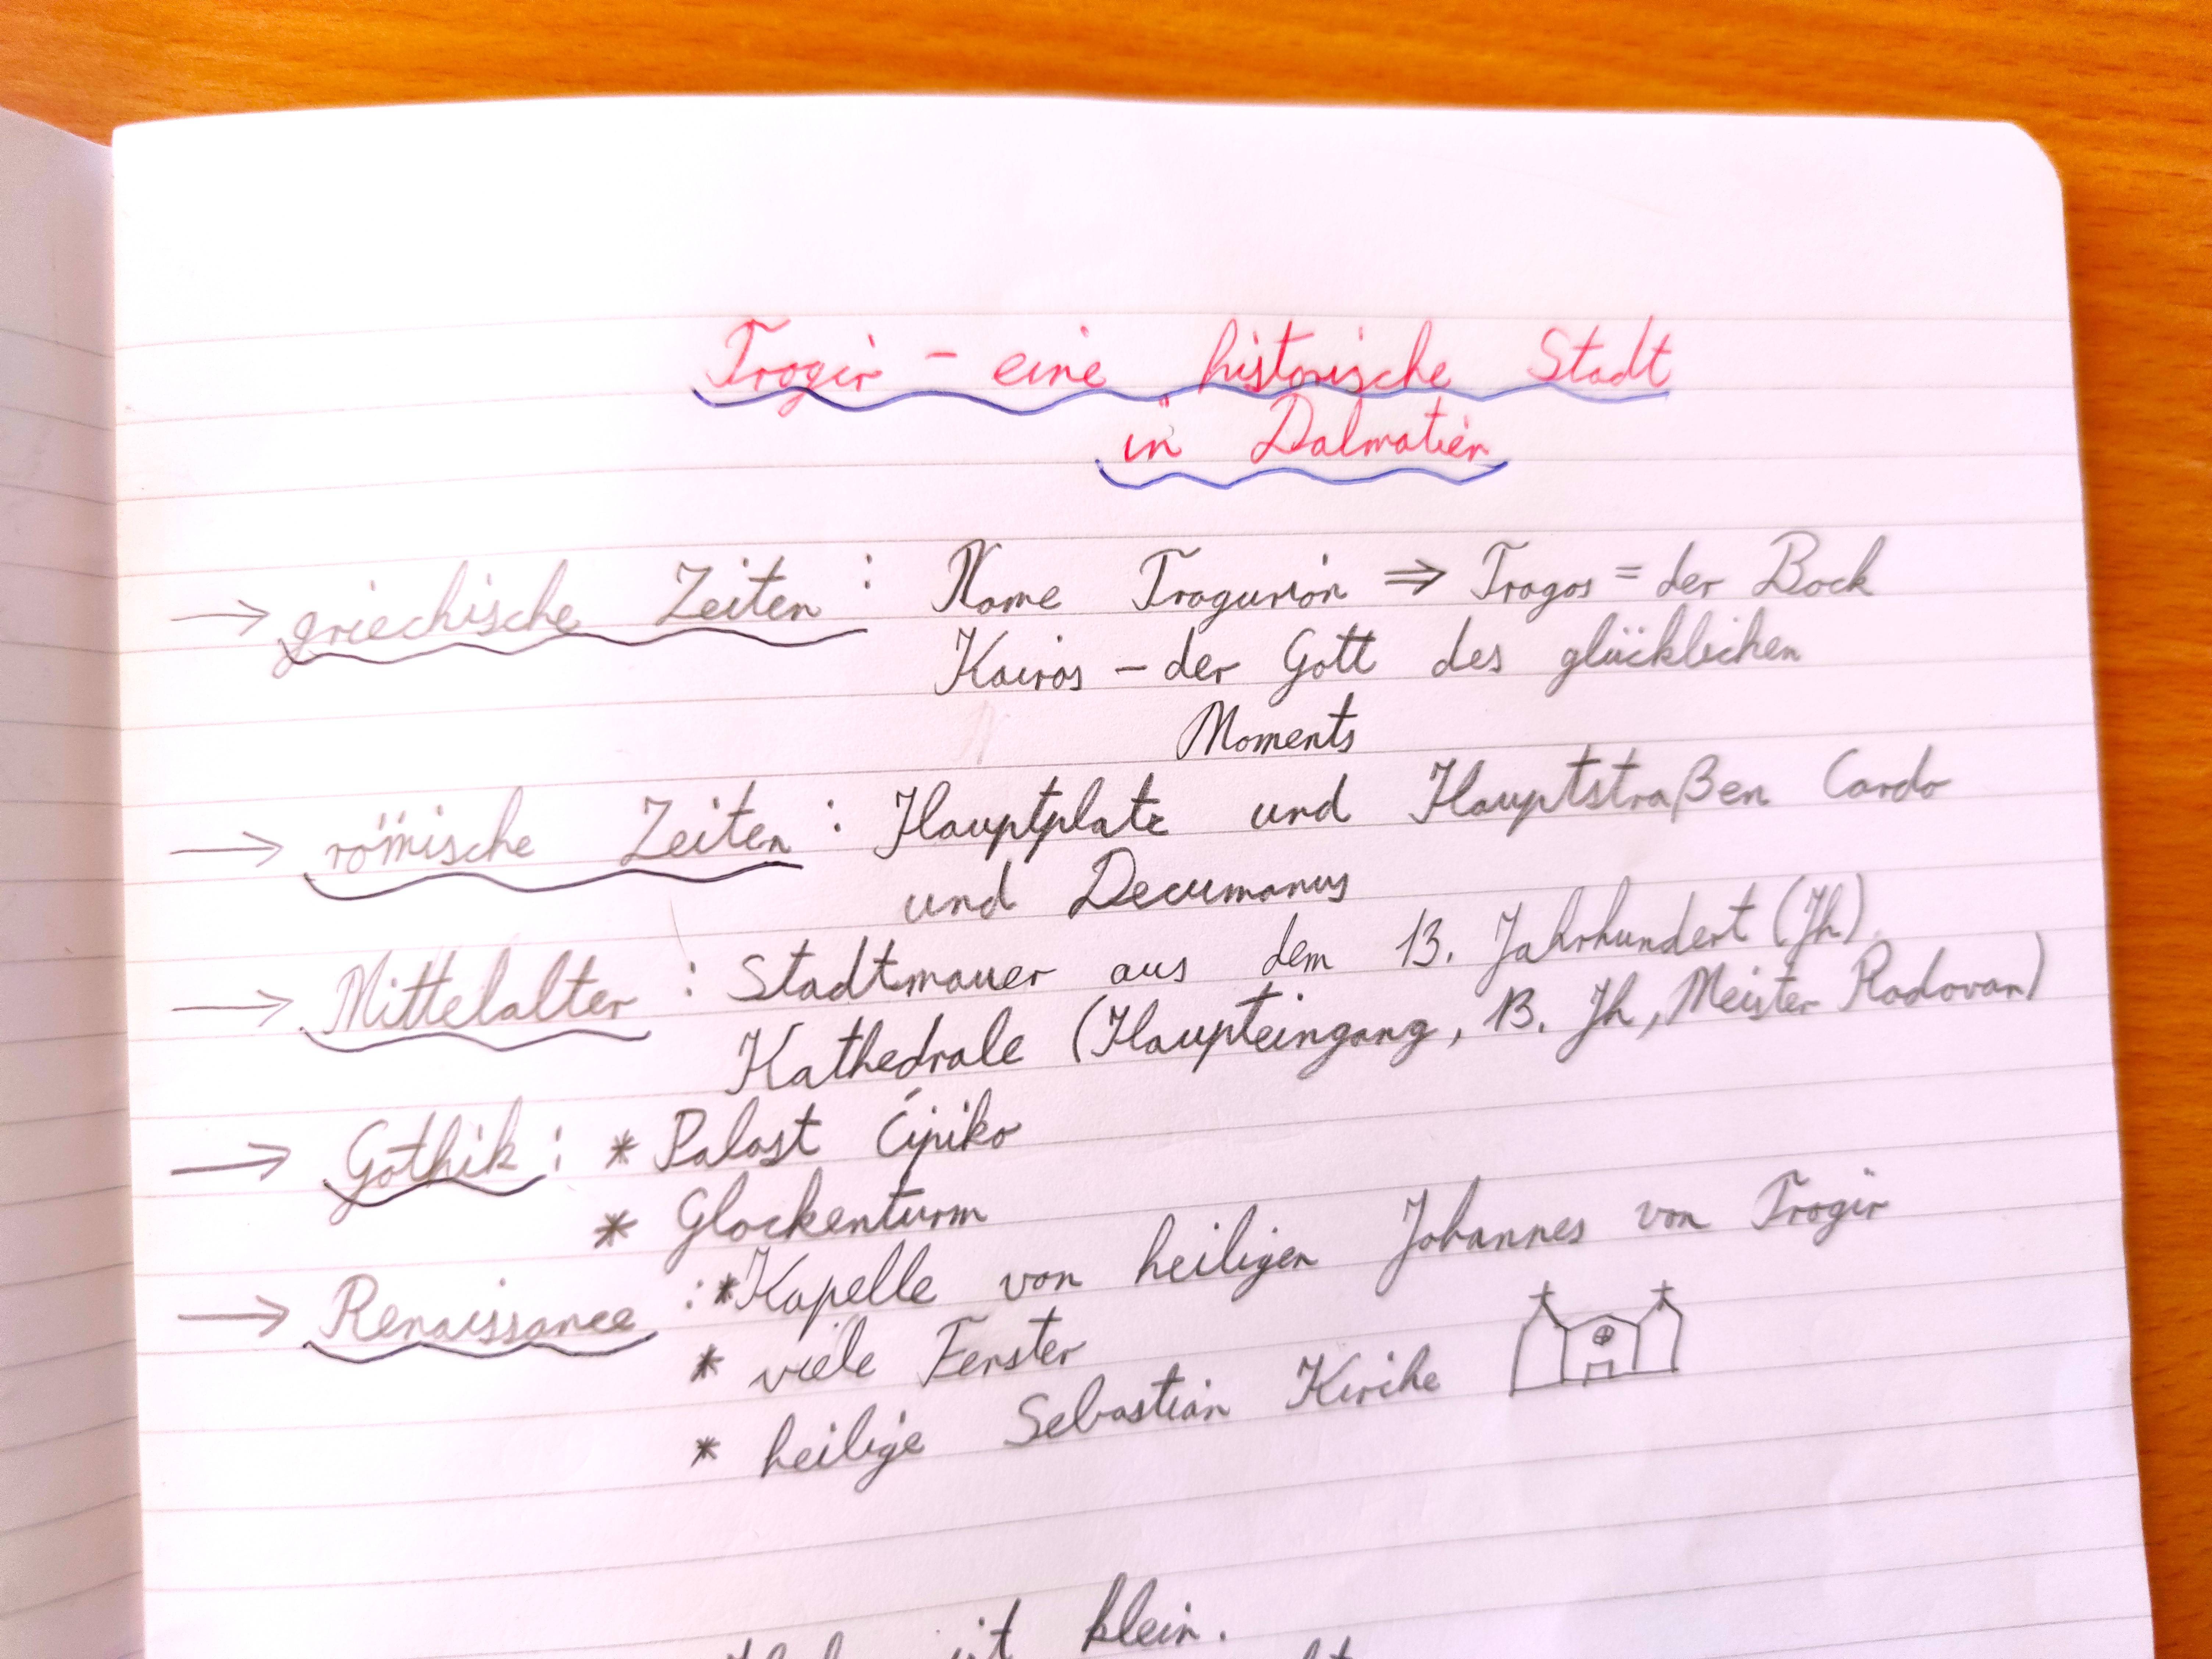 Trogir - eine historische Stadt
in Dalmatien
→ griechische Zeiten : Name Tragurion ⇒ Tragos = der Bock
Kairos - der Gott des glücklichen
Moments
→ römische Zeiten : Hauptplatz und Hauptstraßen Cardo
und Decumanus
→ Mittelalter : Stadtmauer aus dem 13. Jahrhundert (Jh)
Kathedrale (Haupteingang, 13. Jh, Meister Radovan)
→ Gothik : * Palast Ćipiko
* Glockenturm
→ Renaissance : * Kapelle von heiligen Johannes von Trogir
* viele Fenster
* heilige Sebastian Kirche
ist klein.